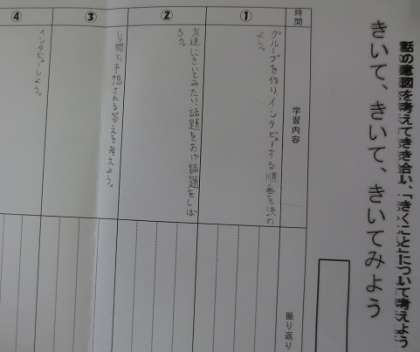 話の意図を考えてきき合い、「きくこと」について考えよう
きいて、きいて、きいてみよう
時間
学習内容
振り返り
①
グループを作りインタビューする順番を決め
よう。
②
友達にきいてみたい話題をあげ話題をしぼ
ろう。
③
質問と予想される答えを考えよう。
④
インタビューしよう。